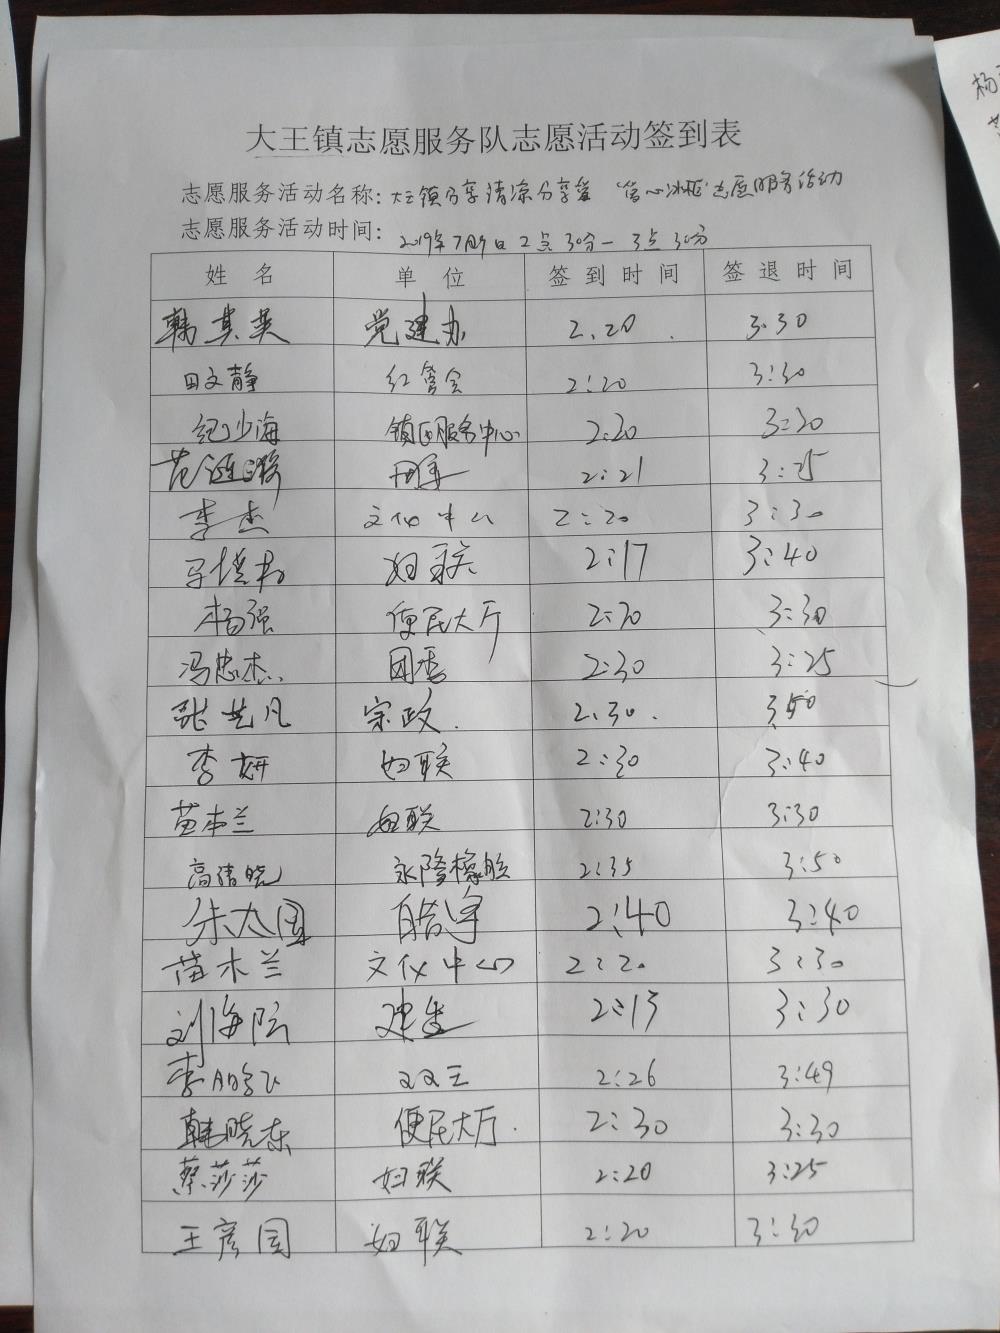 大王镇志愿服务队志愿活动签到表
志愿服务活动名称: 大王镇分享清凉分享爱 "留心冰柜"志愿服务活动
志愿服务活动时间: 2019年7月9日2点30分—3点30分
姓名 单位 签到时间 签退时间
韩其英 党建办 2.20 3.30
田文静 红管会 2:20 3:30
纪少海 镇区服务中心 2:20 3:30
范 2:21 3:25
李杰 文化中心 2:20 3:30
马 妇联 2:17 3:40
杨强 便民大厅 2:30 3:30
冯忠杰 团委 2:30 3:25
张 凡 宗政. 2.30. 3:50
李妍 妇联 2:30 3:40
苗本兰 妇联 2:30 3:30
高清晓 永隆橡胶 2:35 3:50
朱太国 2:40 3:40
苗木兰 文化中心 2:20 3:30
刘海 建 2:13 3:30
李鹏飞 双王 2:26 3:49
韩晓东 便民大厅. 2:30 3:30
蔡莎莎 妇联 2:20 3:25
王彦国 妇联 2:20 3:30
杨